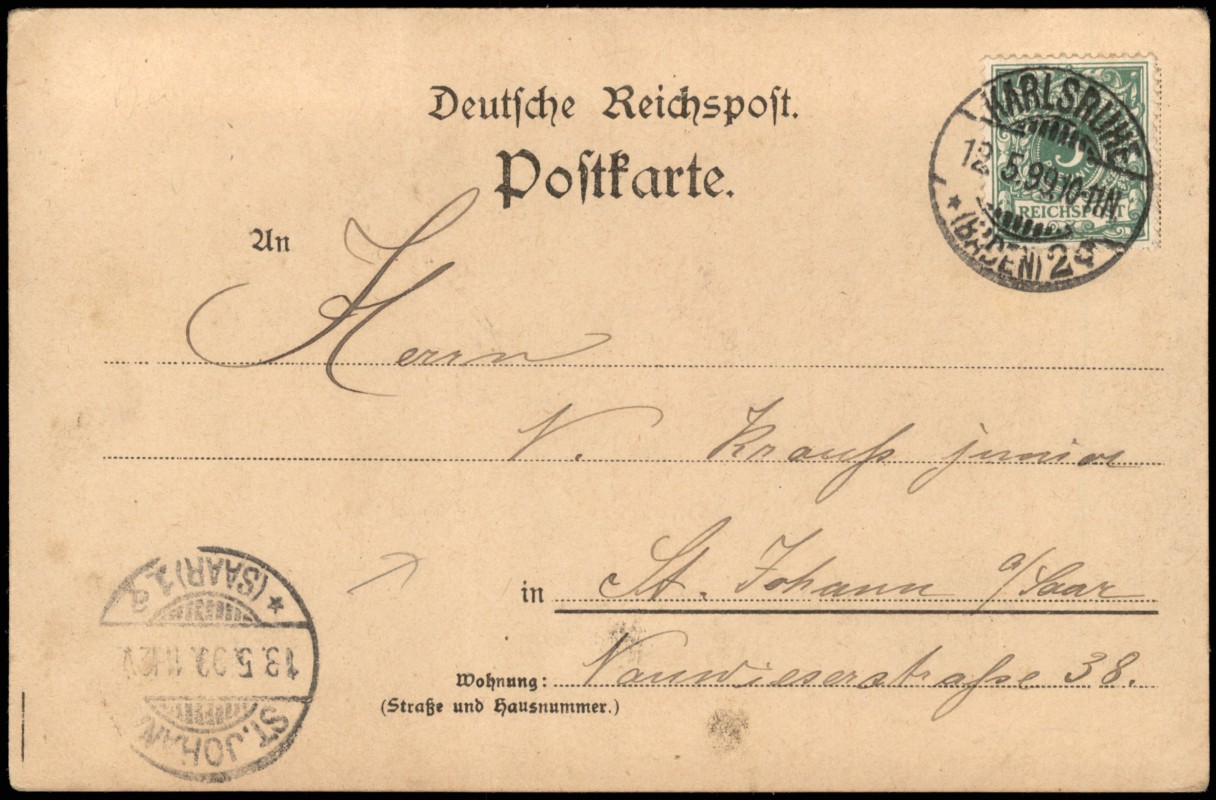 Deutsche Reichspost.
Postkarte.
KARLSRUHE
12 5.99.10-11N.
* (BADEN) 2
5
REICHSPOST
An
Herrn
N. Krauß junior
in St. Johann a/Saar
Wohnung: Nauwieserstraße 38.
(Straße und Hausnummer.)
ST. JOHANN
13.5.99. 11-12V
* (SAAR) 1 a